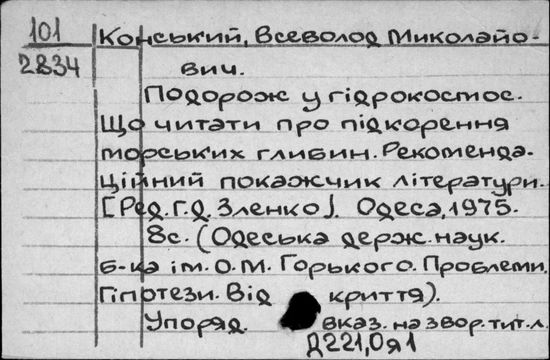 101
2834
Конський, Всеволод Миколайо-
вич.
Подорож у гідрокосмос.
Що читати про підкорення
морських глибин. Рекоменда-
ційний покажчик літератури.
[Ред. Г.Д. Зленко]. Одеса, 1975.
8с. (Одеська держ. наук.
б-ка ім. О.М. Горького. Проблеми.
Гіпотези. Від криття).
Упоряд. вказ. на звор. тит. л.
Д221,0я1